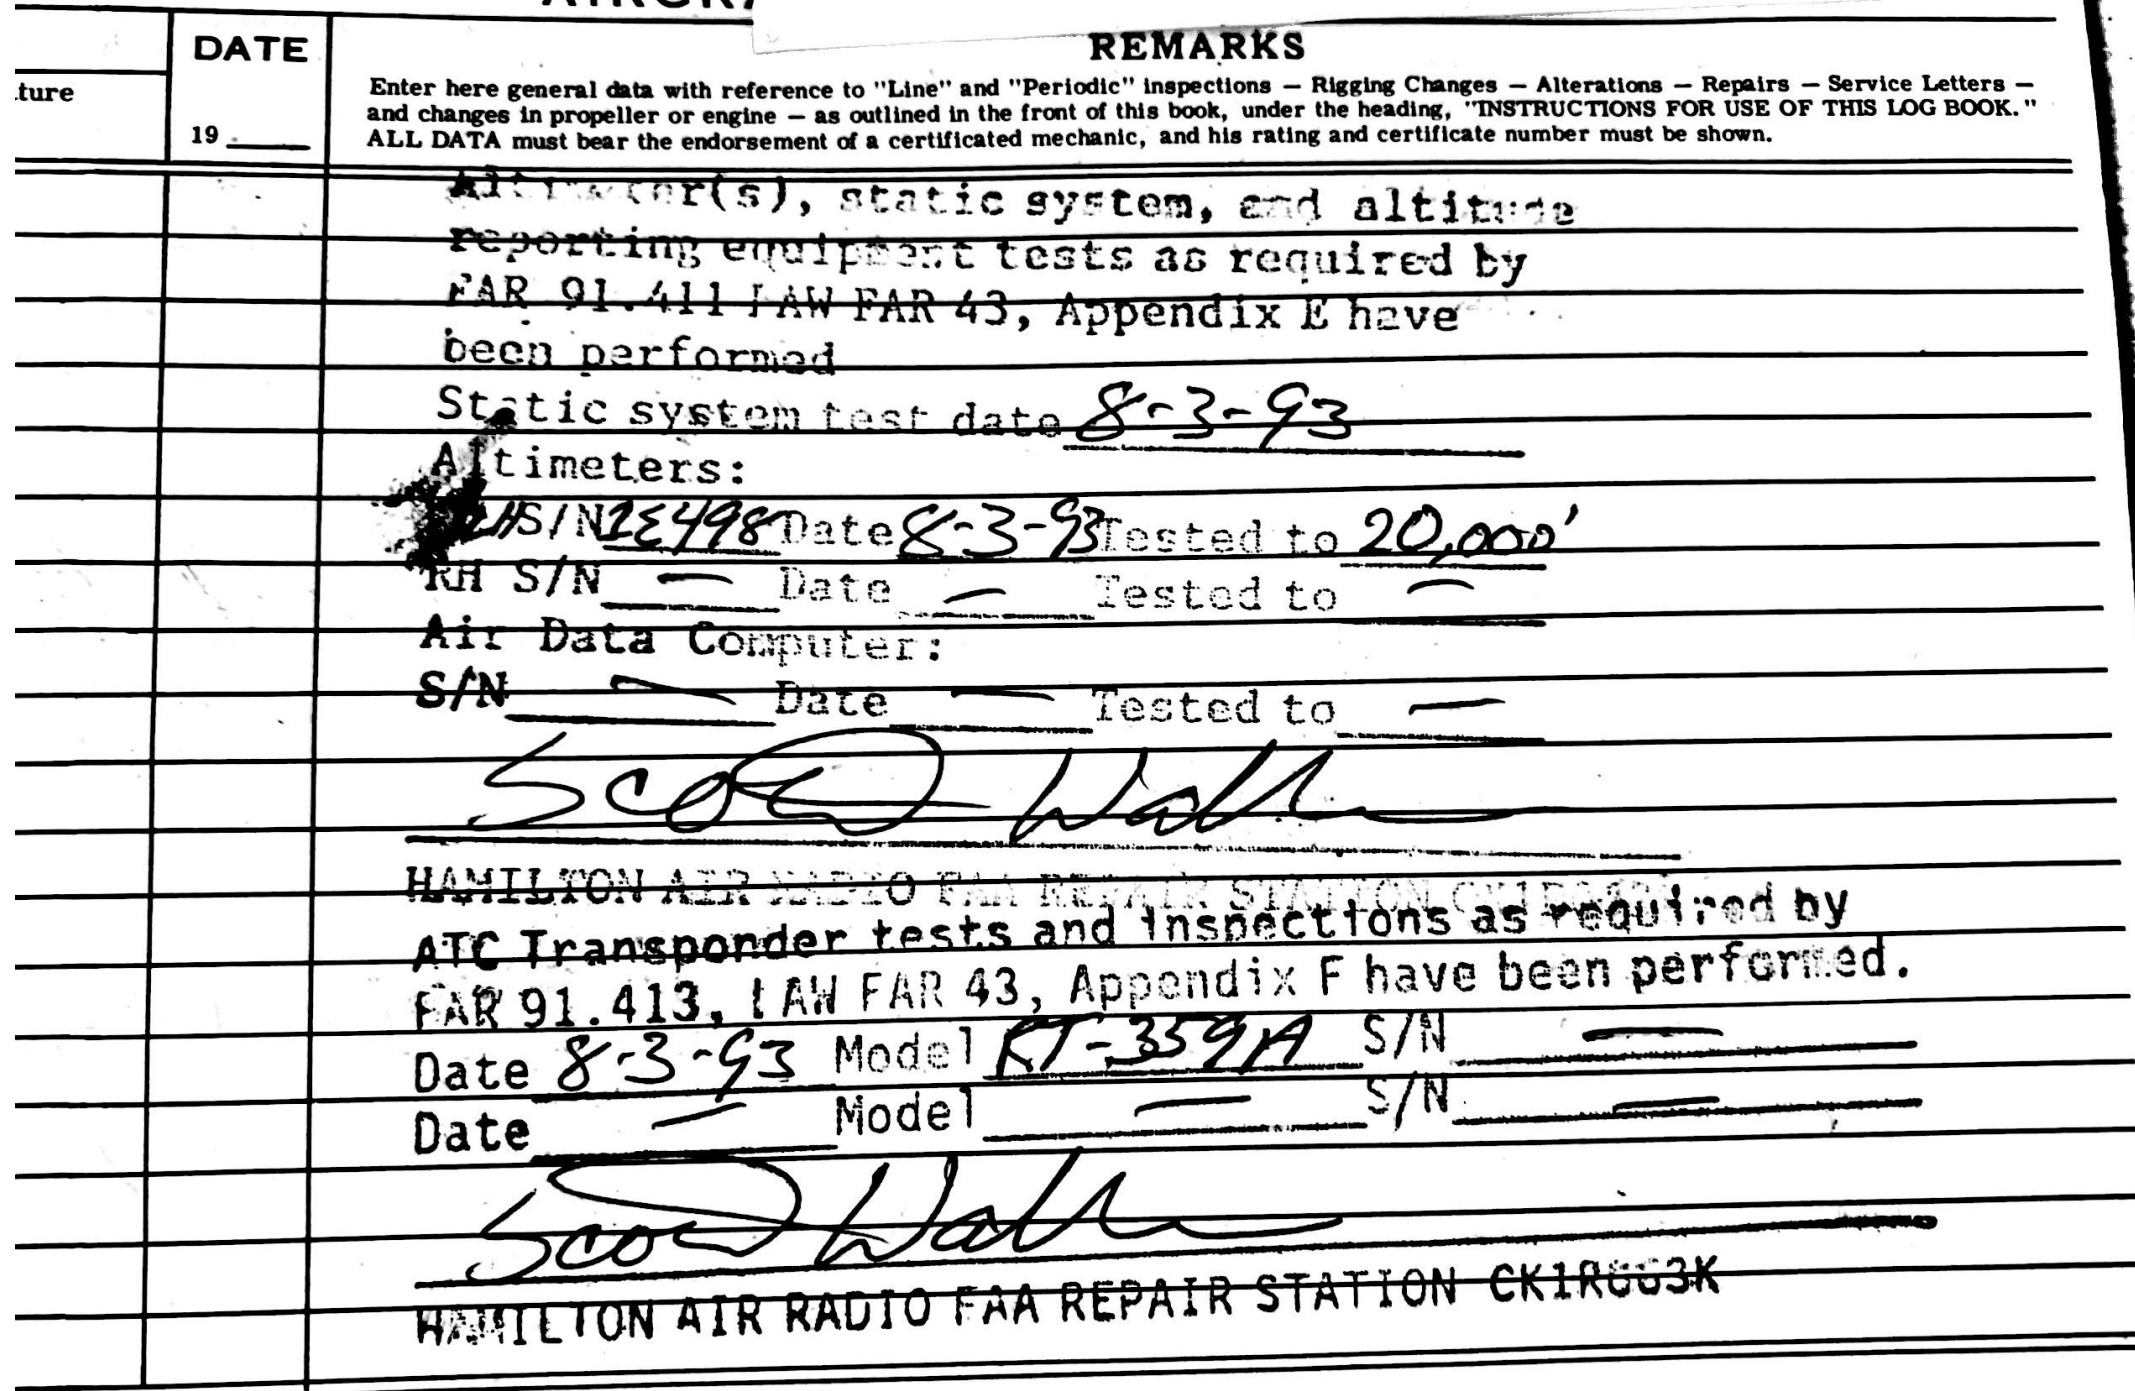 DATE
REMARKS
ture
19
Enter here general data with reference to "Line" and "Periodic" inspections — Rigging Changes — Alterations — Repairs — Service Letters —
and changes in propeller or engine — as outlined in the front of this book, under the heading, "INSTRUCTIONS FOR USE OF THIS LOG BOOK."
ALL DATA must bear the endorsement of a certificated mechanic, and his rating and certificate number must be shown.
Altimeter(s), static system, and altitude
reporting equipment tests as required by
FAR 91.411 IAW FAR 43, Appendix E have
been performed
Static system test date 8-3-93
Altimeters:
LH S/N 1E498 Date 8-3-93 Tested to 20,000'
RH S/N — Date — Tested to —
Air Data Computer:
S/N — Date — Tested to —
HAMILTON AIR RADIO FAA REPAIR STATION
ATC Transponder tests and inspections as required by
FAR 91.413, IAW FAR 43, Appendix F have been performed.
Date 8-3-93 Model RT-359A S/N —
Date — Model — S/N —
HAMILTON AIR RADIO FAA REPAIR STATION